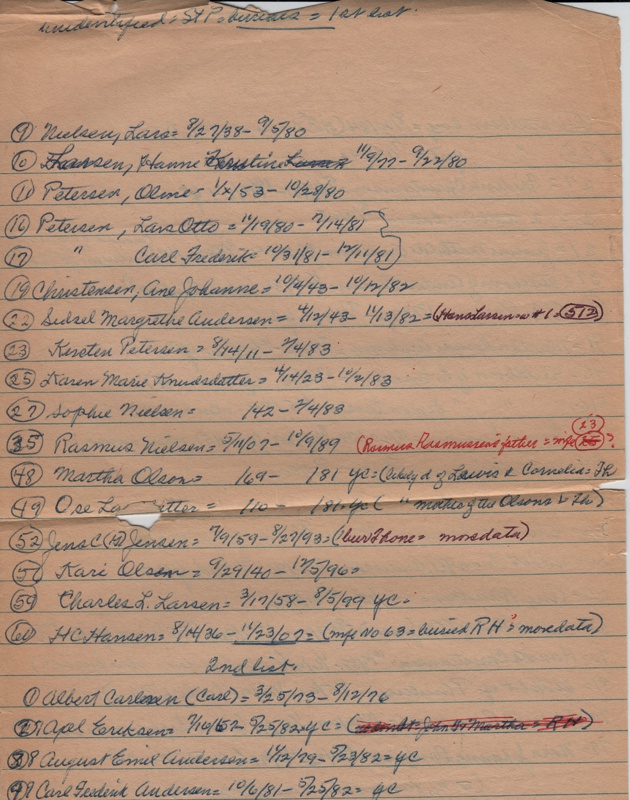 unidentified = St P. burials = 1st list.
⑨ Nielsen, Lars = 8/27/38 - 9/5/80
⑩ Hansen, Hanne 11/9/77 - 9/22/80
⑪ Petersen, Oline = 1/x/53 - 10/28/80
⑯ Petersen, Lars Otto = 11/19/80 - 7/14/81
⑰ " Carl Frederik = 10/31/81 - 12/11/81
⑲ Christensen, Ane Johanne = 10/4/43 - 10/12/82
㉒ Sidsel Margrethe Andersen = 4/12/43 - 11/13/82 = (Hans Larsen = w #1 = 512)
㉓ Kirsten Petersen = 8/14/11 - 2/4/83
㉕ Karen Marie Knudsdatter = 4/14/23 - 10/2/83
㉗ Sophie Nielsen = 142 - 2/4/83
23
㉟ Rasmus Nielsen = 5/4/07 - 10/9/89 (Rasmus Rasmussen's father = mfc ?)
㊽ Martha Olson = 169 - 181 yc = (likely d of Lewis & Cornelia = Th
㊾ Ose La tter = 110 - 181 yc ( " mother of the Olsons & Th)
52 Jens C (H) Jensen = 7/9/59 - 8/27/93 = (bur Phone = more data)
Kari Olsen = 9/29/40 - 12/5/96 =
59 Charles L. Larsen = 3/17/58 - 8/5/99 yc =
60 HC Hansen = 8/14/36 - 11/23/07 = (mfc No 63 = buried RH = more data)
2nd list.
① Albert Carlsen (Carl) = 3/25/73 - 8/12/76
Apel Eriksen = 7/10/52 - 5/25/82 = yc =
8 August Emil Andersen = 11/12/79 - 5/23/82 = yc
9 Carl Frederik Andersen = 10/6/81 - 5/25/82 = yc